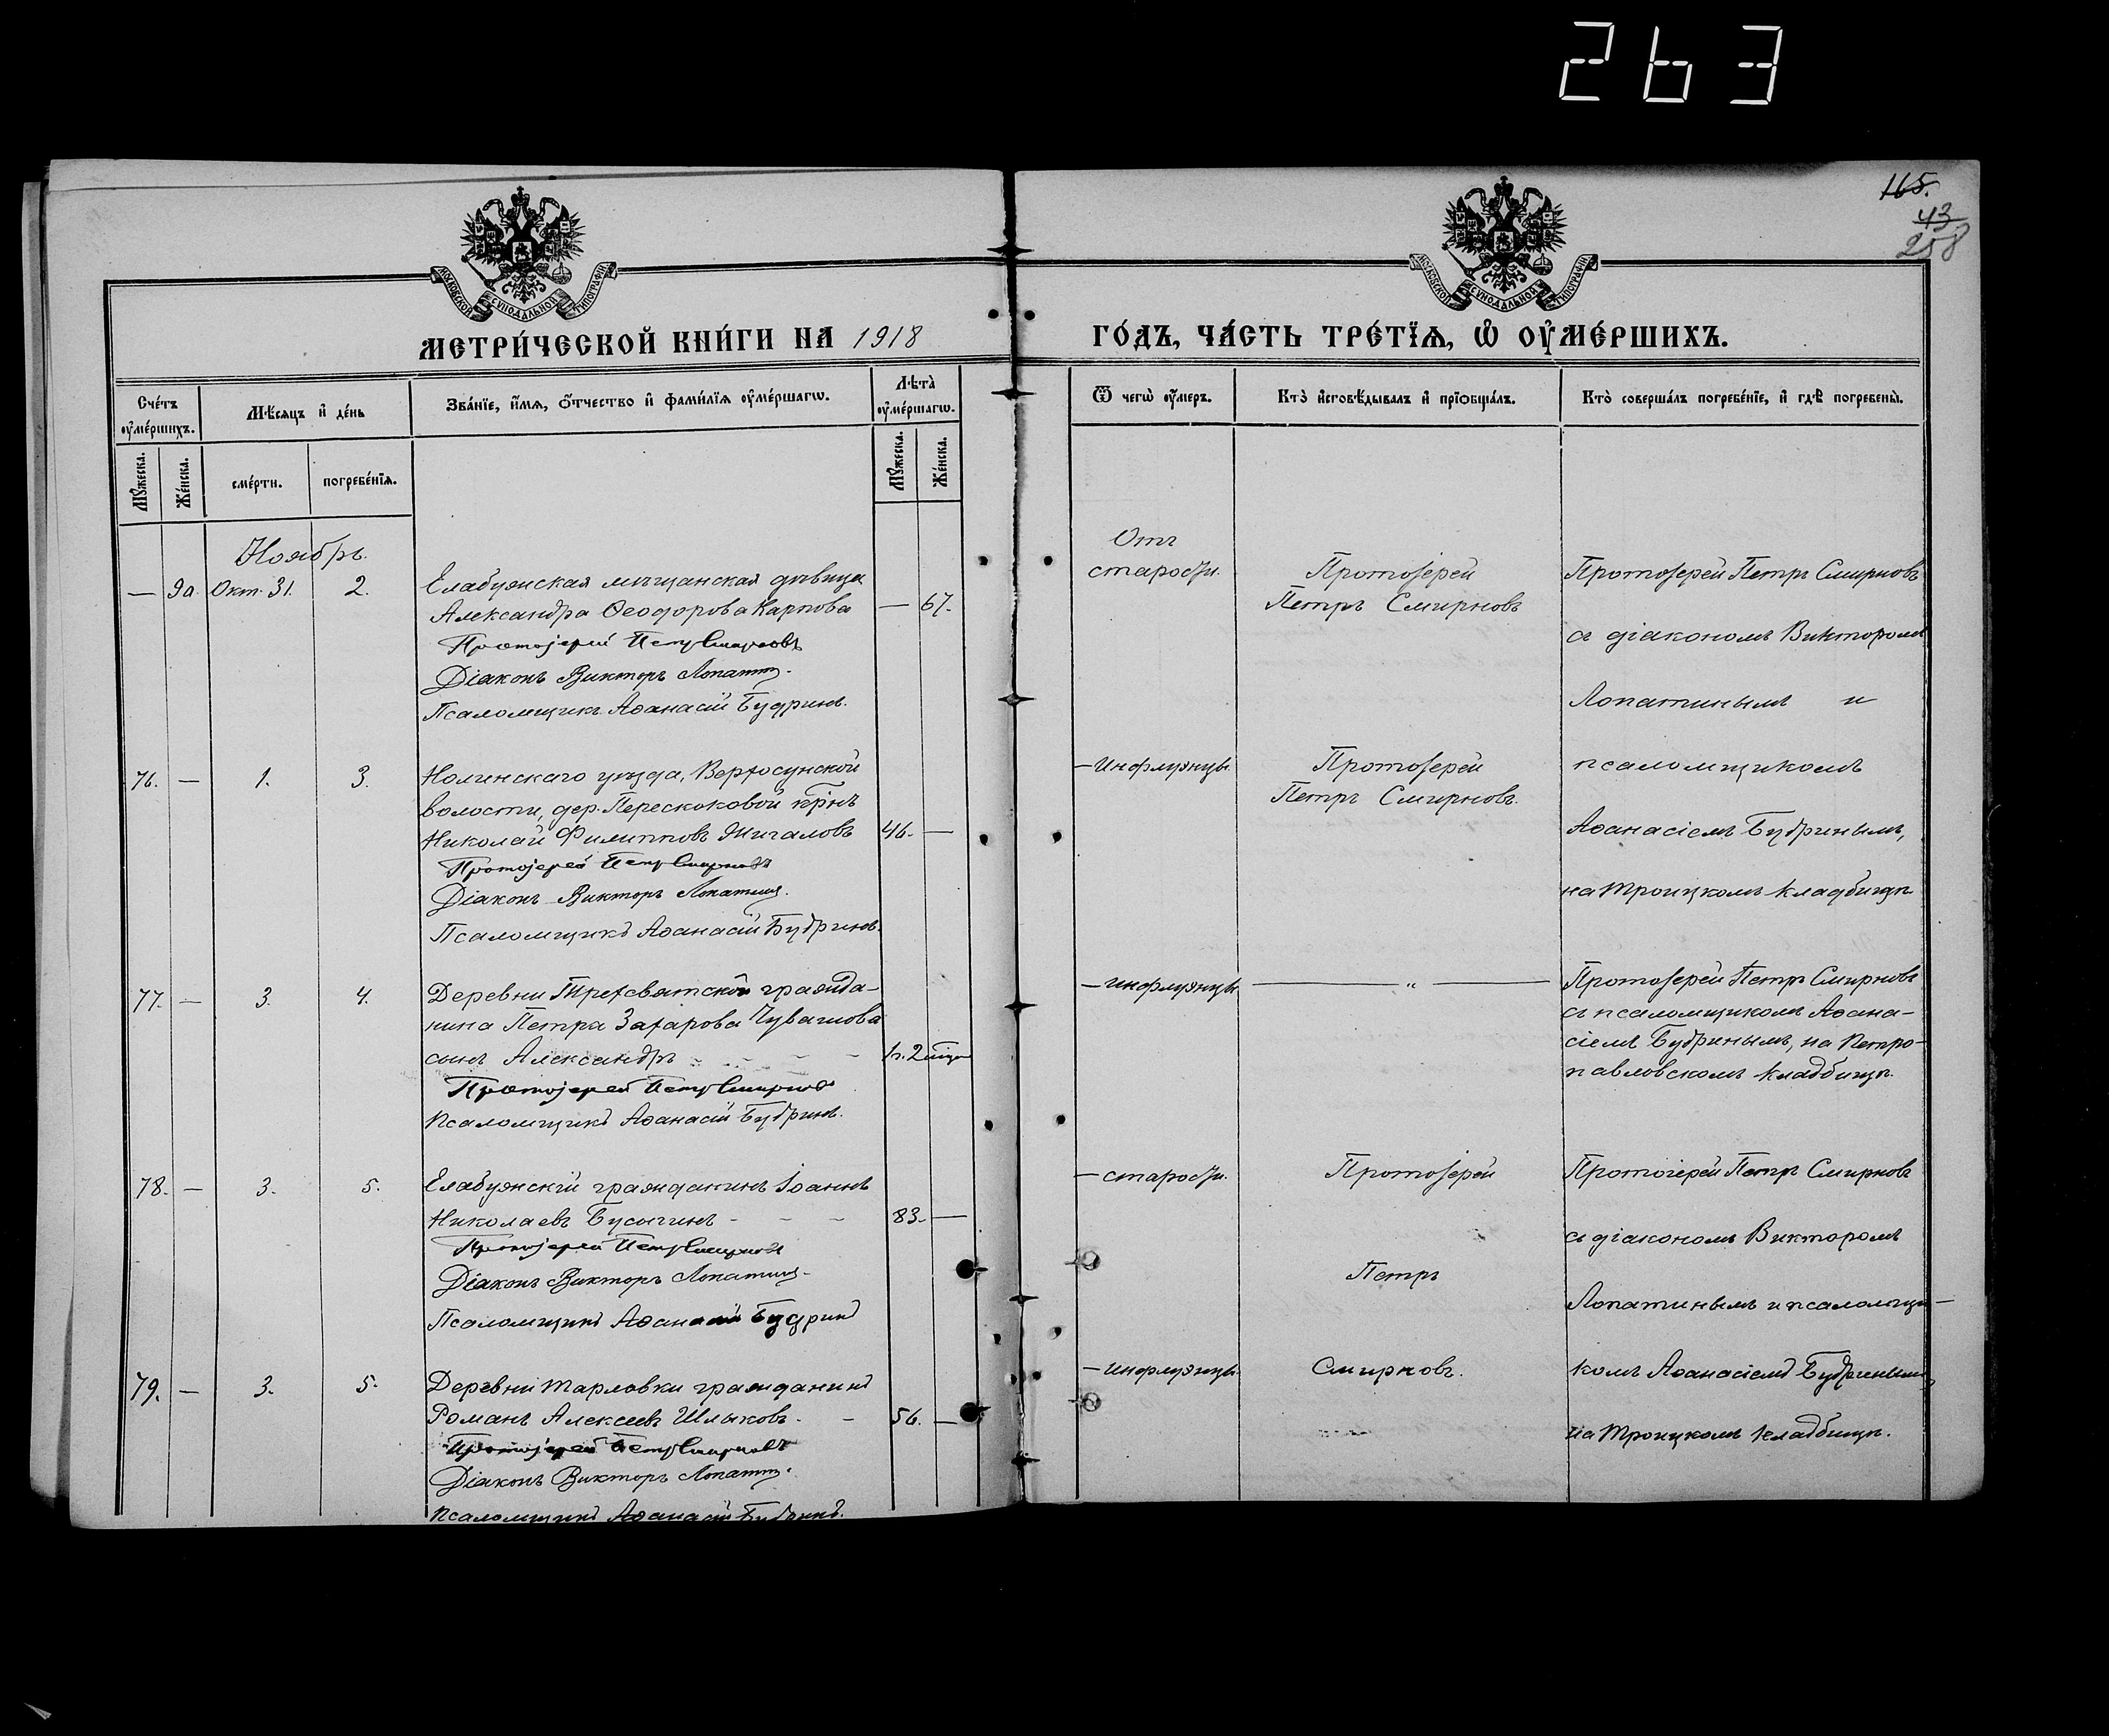 263
165.
43
258
МОСКОВСКОЙ СѴНОДАЛЬНОЙ ТИПОГРАФІИ
МОСКОВСКОЙ СѴНОДАЛЬНОЙ ТИПОГРАФІИ
МЕТРИ́ЧЕСКОЙ КНИ́ГИ НА 1918 ГО́ДЪ, ЧА́СТЬ ТРЕ́ТЇѦ, Ѽ ОУ҆МЕ́РШИХЪ.
Сче́тъ оу҆ме́ршихъ.
Мѣ́сяцъ и҆ де́нь
Зва́нїе, и҆́мѧ, ѻ҆́тчество и҆ фами́лїѧ оу҆ме́ршагѡ.
Лѣта̀ оу҆ме́ршагѡ.
Ѿ чегѡ̀ оу҆́меръ.
Кто̀ и҆сповѣ́дывалъ и҆ прїѡбща́лъ.
Кто̀ соверша́лъ погребе́нїе, и҆ гдѣ̀ погребены̀.
Мꙋ́жеска.
Же́нска.
сме́рти.
погребе́нїѧ.
Мꙋ́жеска.
Же́нска.
Ноябрь.
— 90. Окт. 31. 2.
Елабужская мѣщанская дѣвица
Александра Ѳеодорова Карпова — 67.
Протоіерей Петръ Смирновъ
Діаконъ Викторъ Лопатин.
Псаломщикъ Аѳанасій Будринъ.
Отъ
старости.
Протоіерей
Петръ Смирновъ
Протоіерей Петръ Смирновъ
съ діакономъ Викторомъ
Лопатинымъ и
псаломщикомъ
Аѳанасіемъ Будринымъ,
на Троицкомъ кладбищѣ.
76. — 1. 3.
Нолинскаго уѣзда, Верхосунской
волости, дер. Перескоковой кр̃нъ
Николай Филипповъ Жигаловъ 46. —
Протоіерей Петръ Смирновъ
Діаконъ Викторъ Лопатин.
Псаломщикъ Аѳанасій Будринъ.
— Инфлуэнцы.
Протоіерей
Петръ Смирновъ.
77. — 3. 4.
Деревни Трехсвятской гражда-
нина Петра Захарова Чувашова
сынъ Александръ 1 г. 2 мѣц
Протоіерей Петръ Смирновъ
Псаломщикъ Аѳанасій Будринъ.
— инфлуэнцы
— „ —
Протоіерей Петръ Смирновъ
съ псаломщикомъ Аѳана-
сіемъ Будринымъ, на Петро-
павловскомъ кладбищѣ.
78. — 3. 5.
Елабужскій гражданинъ Іоаннъ
Николаевъ Бусыгинъ 83. —
Протоіерей Петръ Смирновъ
Діаконъ Викторъ Лопатин.
Псаломщикъ Аѳанасій Будринъ
— старости.
Протоіерей
Петръ
Смирновъ.
Протоіерей Петръ Смирновъ
съ діакономъ Викторомъ
Лопатинымъ и псаломщи-
комъ Аѳанасіемъ Будринымъ,
на Троицкомъ кладбищѣ.
79. — 3. 5.
Деревни Тарловки гражданинъ
Романъ Алексеевъ Шлыковъ. 56. —
Протоіерей Петръ Смирновъ
Діаконъ Викторъ Лопатин.
Псаломщикъ Аѳанасій Будринъ.
— инфлуэнцы